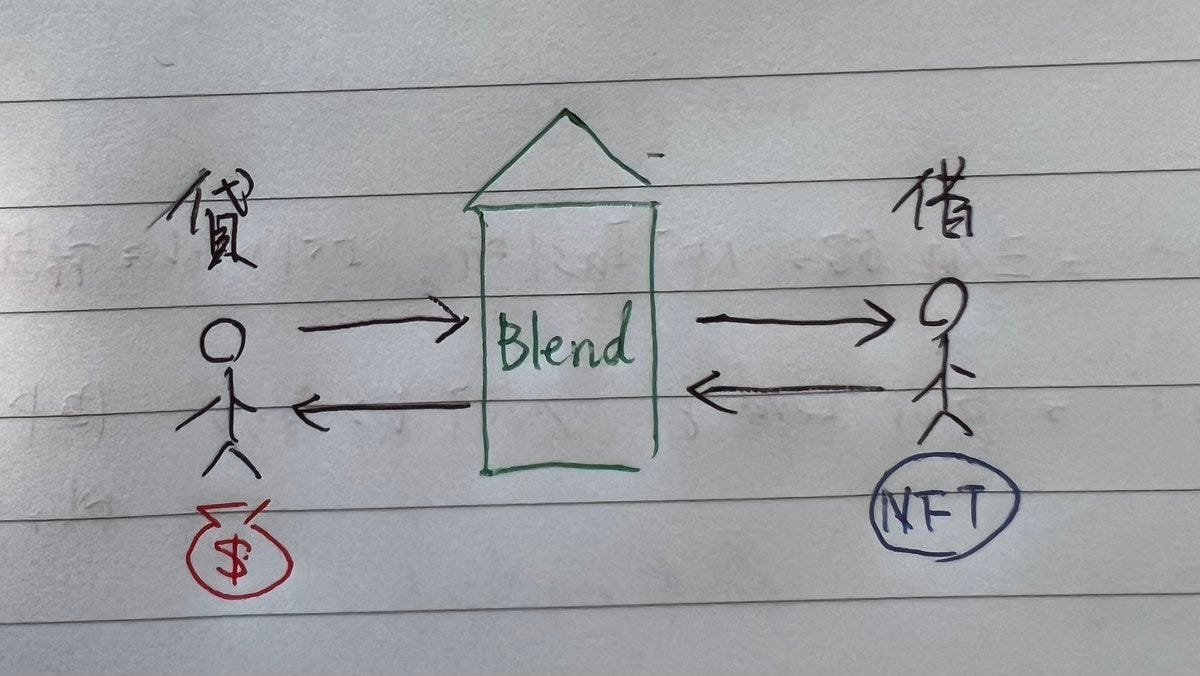 貸
借
Blend
$
NFT